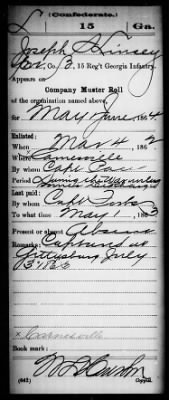 (Confederate.)
15 Ga.
Joseph S Kinsey
Co. B, 15 Reg't Georgia Infantry.
Appears on
Company Muster Roll
of the organization named above,
for May June, 1864
Enlisted:
When Mar 4, 1862
Where Carnesville
By whom Capt
Period During the War
Last paid:
By whom Capt
To what time May 1, 1863
Present or absent Absent
Remarks: Captured at
Gettysburg July
3d 1863
x Carnesville
Book mark:
(642) Copyist.